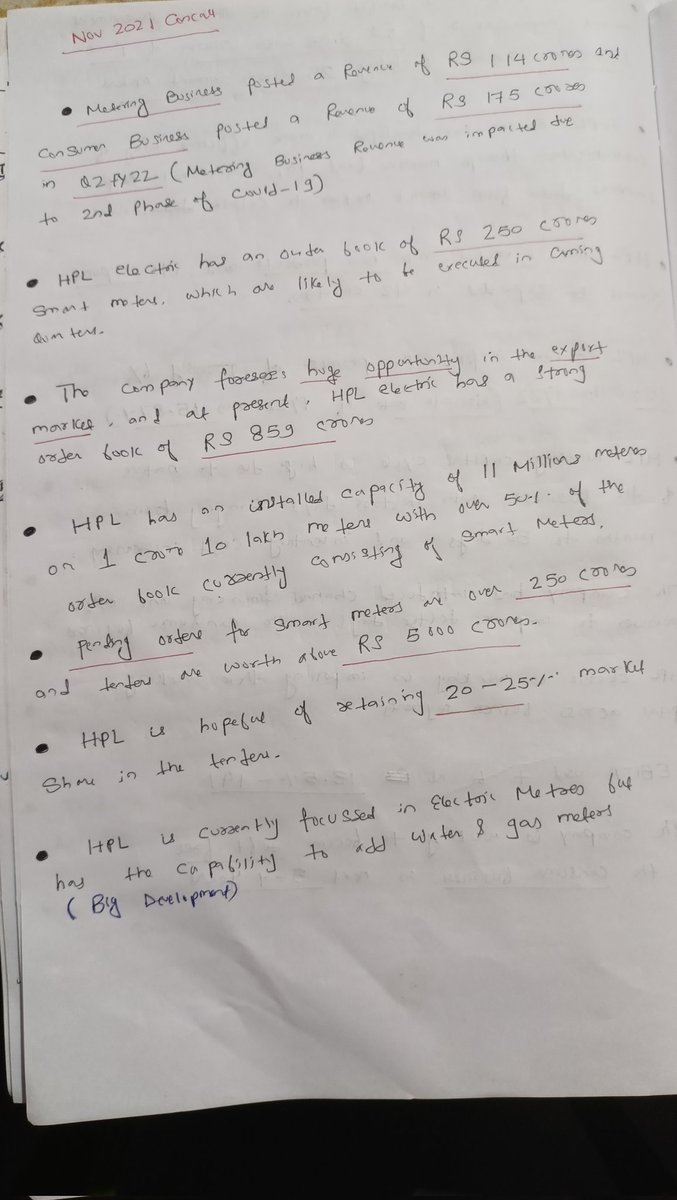 Nov 2021 Concall
• Metering Business posted a Revenue of RS 114 crores and
Consumer Business posted a Revenue of RS 175 crores
in Q2 FY22 (Metering Business Revenue was impacted due
to 2nd Phase of Covid-19)
• HPL electric has an order book of RS 250 crores
Smart meters, which are likely to be executed in coming
Quarters.
• The company foresees huge opportunity in the export
market, and at present, HPL electric has a strong
order book of RS 859 crores
• HPL has an installed capacity of 11 Millions meteres
or 1 crore 10 lakh meters with over 50%. of the
order book currently consisting of Smart Meters.
• Pending orders for smart meters are over 250 crores
and tenders are worth above RS 5000 crores.
• HPL is hopeful of retaining 20-25%. market
Share in the tenders.
• HPL is currently focussed in Electric Metres but
has the capability to add water & gas meters
(Big Development)